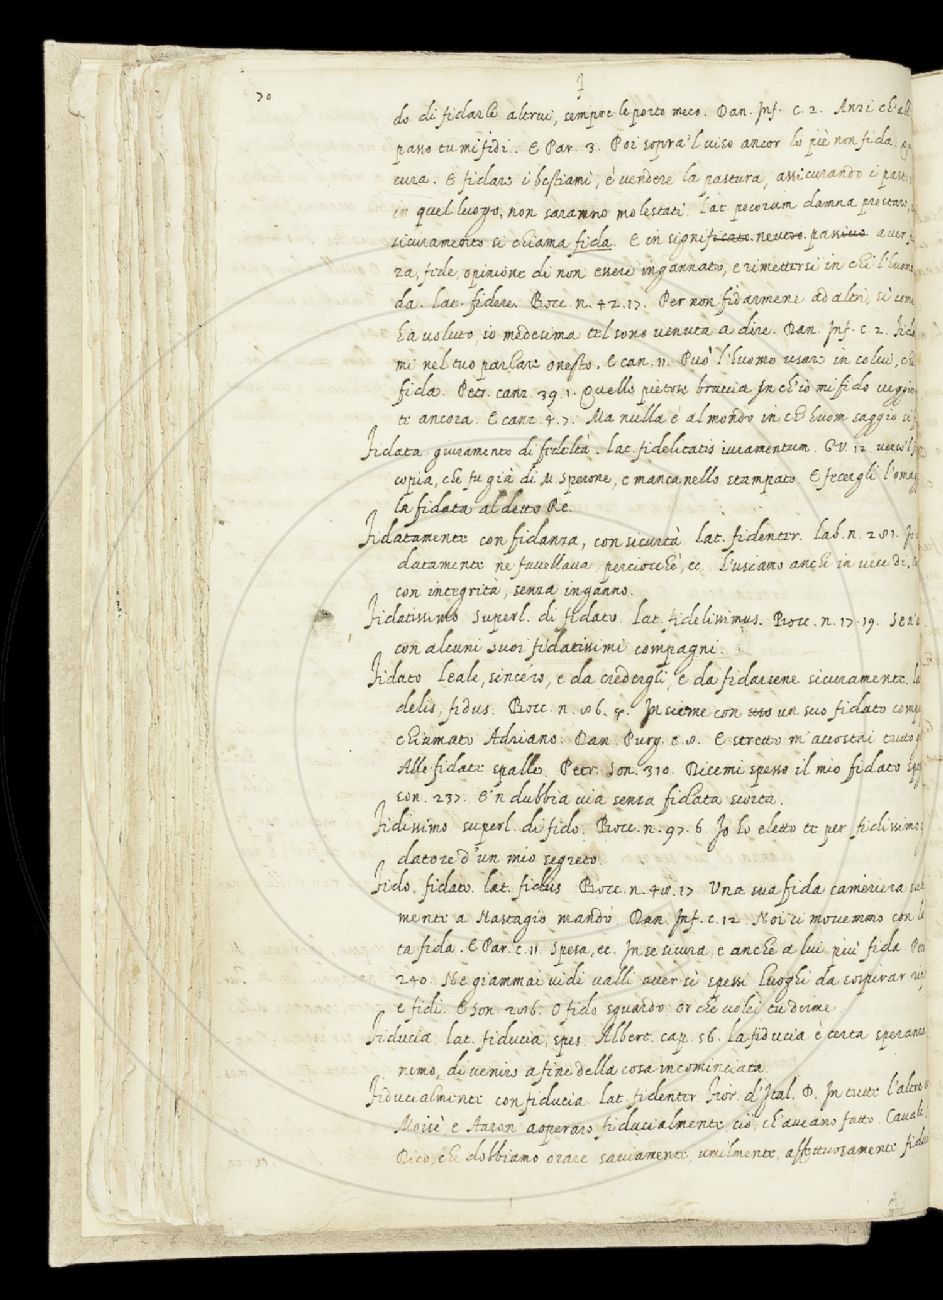 70
F
do di fidarle altrui, sempre le porto meco. Dan. Inf. c. 2. Anzi ch'all
passo tu mi fidi. E Par. 3. Poi sopra'l viso ancor lo piè non fida
cura. E fidare i bestiami, è vendere la pastura, assicurando i pasto
in quel luogo, non saranno molestati. Lat. pecorum damna prestare
sicuramento si chiama fida. E in significato neutro passivo aver
za, fede, opinione di non essere ingannato, e rimettersi in chi l'huomo
da. lat. fidere. Bocc. n. 42. 17. Per non fidarmene ad altri, sì come
ha voluto, io medesima tel sono venuta a dire. Dan. Inf. c. 2. fido
mi nel tuo parlare onesto. E can. 11. Può l'huomo usare in colui, che
fida. Petr. canz. 39. 1. Quelle pietose braccia In ch'io mi fido veggio
te ancora. E canz. 4. 7. Ma nulla è al mondo in ch'huom saggio si
Fidata giuramento di fedeltà. lat. fidelitatis iuramentum. G.V. 12.
copia, che fu già di M. Sperone, e manca nello stampato. E fecergli l'omag
la fidata al detto Re.
Fidatamente con fidanza, con sicurtà lat. fidenter. Lab. n. 281. Io
datamente ne favellava, perciocchè, ec. Lusciano anche in vece di,
con integrità, senza inganno.
Fidatissimo Superl. di fidato. lat. fidelissimus. Bocc. n. 17. 19. Sen'a
con alcuni suoi fidatissimi compagni.
Fidato leale, sincero, e da credergli, e da fidarsene sicuramente.
delis, fidus. Bocc. n. 86. 4. Insieme con un suo fidato comp
chiamato Adriano. Dan Purg. c. 8. E stretto m'accostai tutto
Alle fidate spalle. Petr. Son. 310. Dicemi spesso il mio fidato spe
son. 237. E'n dubbia via senza fidata scorta.
Fidissimo superl. di fido. Bocc. n. 97. 6. Io ho eletto te per fidissimo
datore d'un mio segreto.
Fido, fidato. lat. fidus Bocc. n. 48. 17. Una sua fida cameriera
mente a Nastagio mandò. Dan. Inf. c. 12. Noi ci movemmo con
ta fida. E Par. c. 11. Spesa, ec. In se sicura, e anche a lui più fida
240. Nè giammai vidi valli aver sì spessi luoghi da sospirar
e fidi. E son. 286. O fido sguardo or che volei tu dirme.
Fiducia lat. fiducia, spes. Albert. cap. 56. La fiducia è certa speranza
nimo, di venire a fine della cosa incominciata.
Fiducialmente con fiducia. lat. fidenter. Fior. d'Ital. D. In tutte l'altre
Moisè e Aaron aoperaro fiducialmente, ciò, ch'aveano fatto. Caval
Dico, che dobbiamo orare saviamente, umilmente, affettuosamente